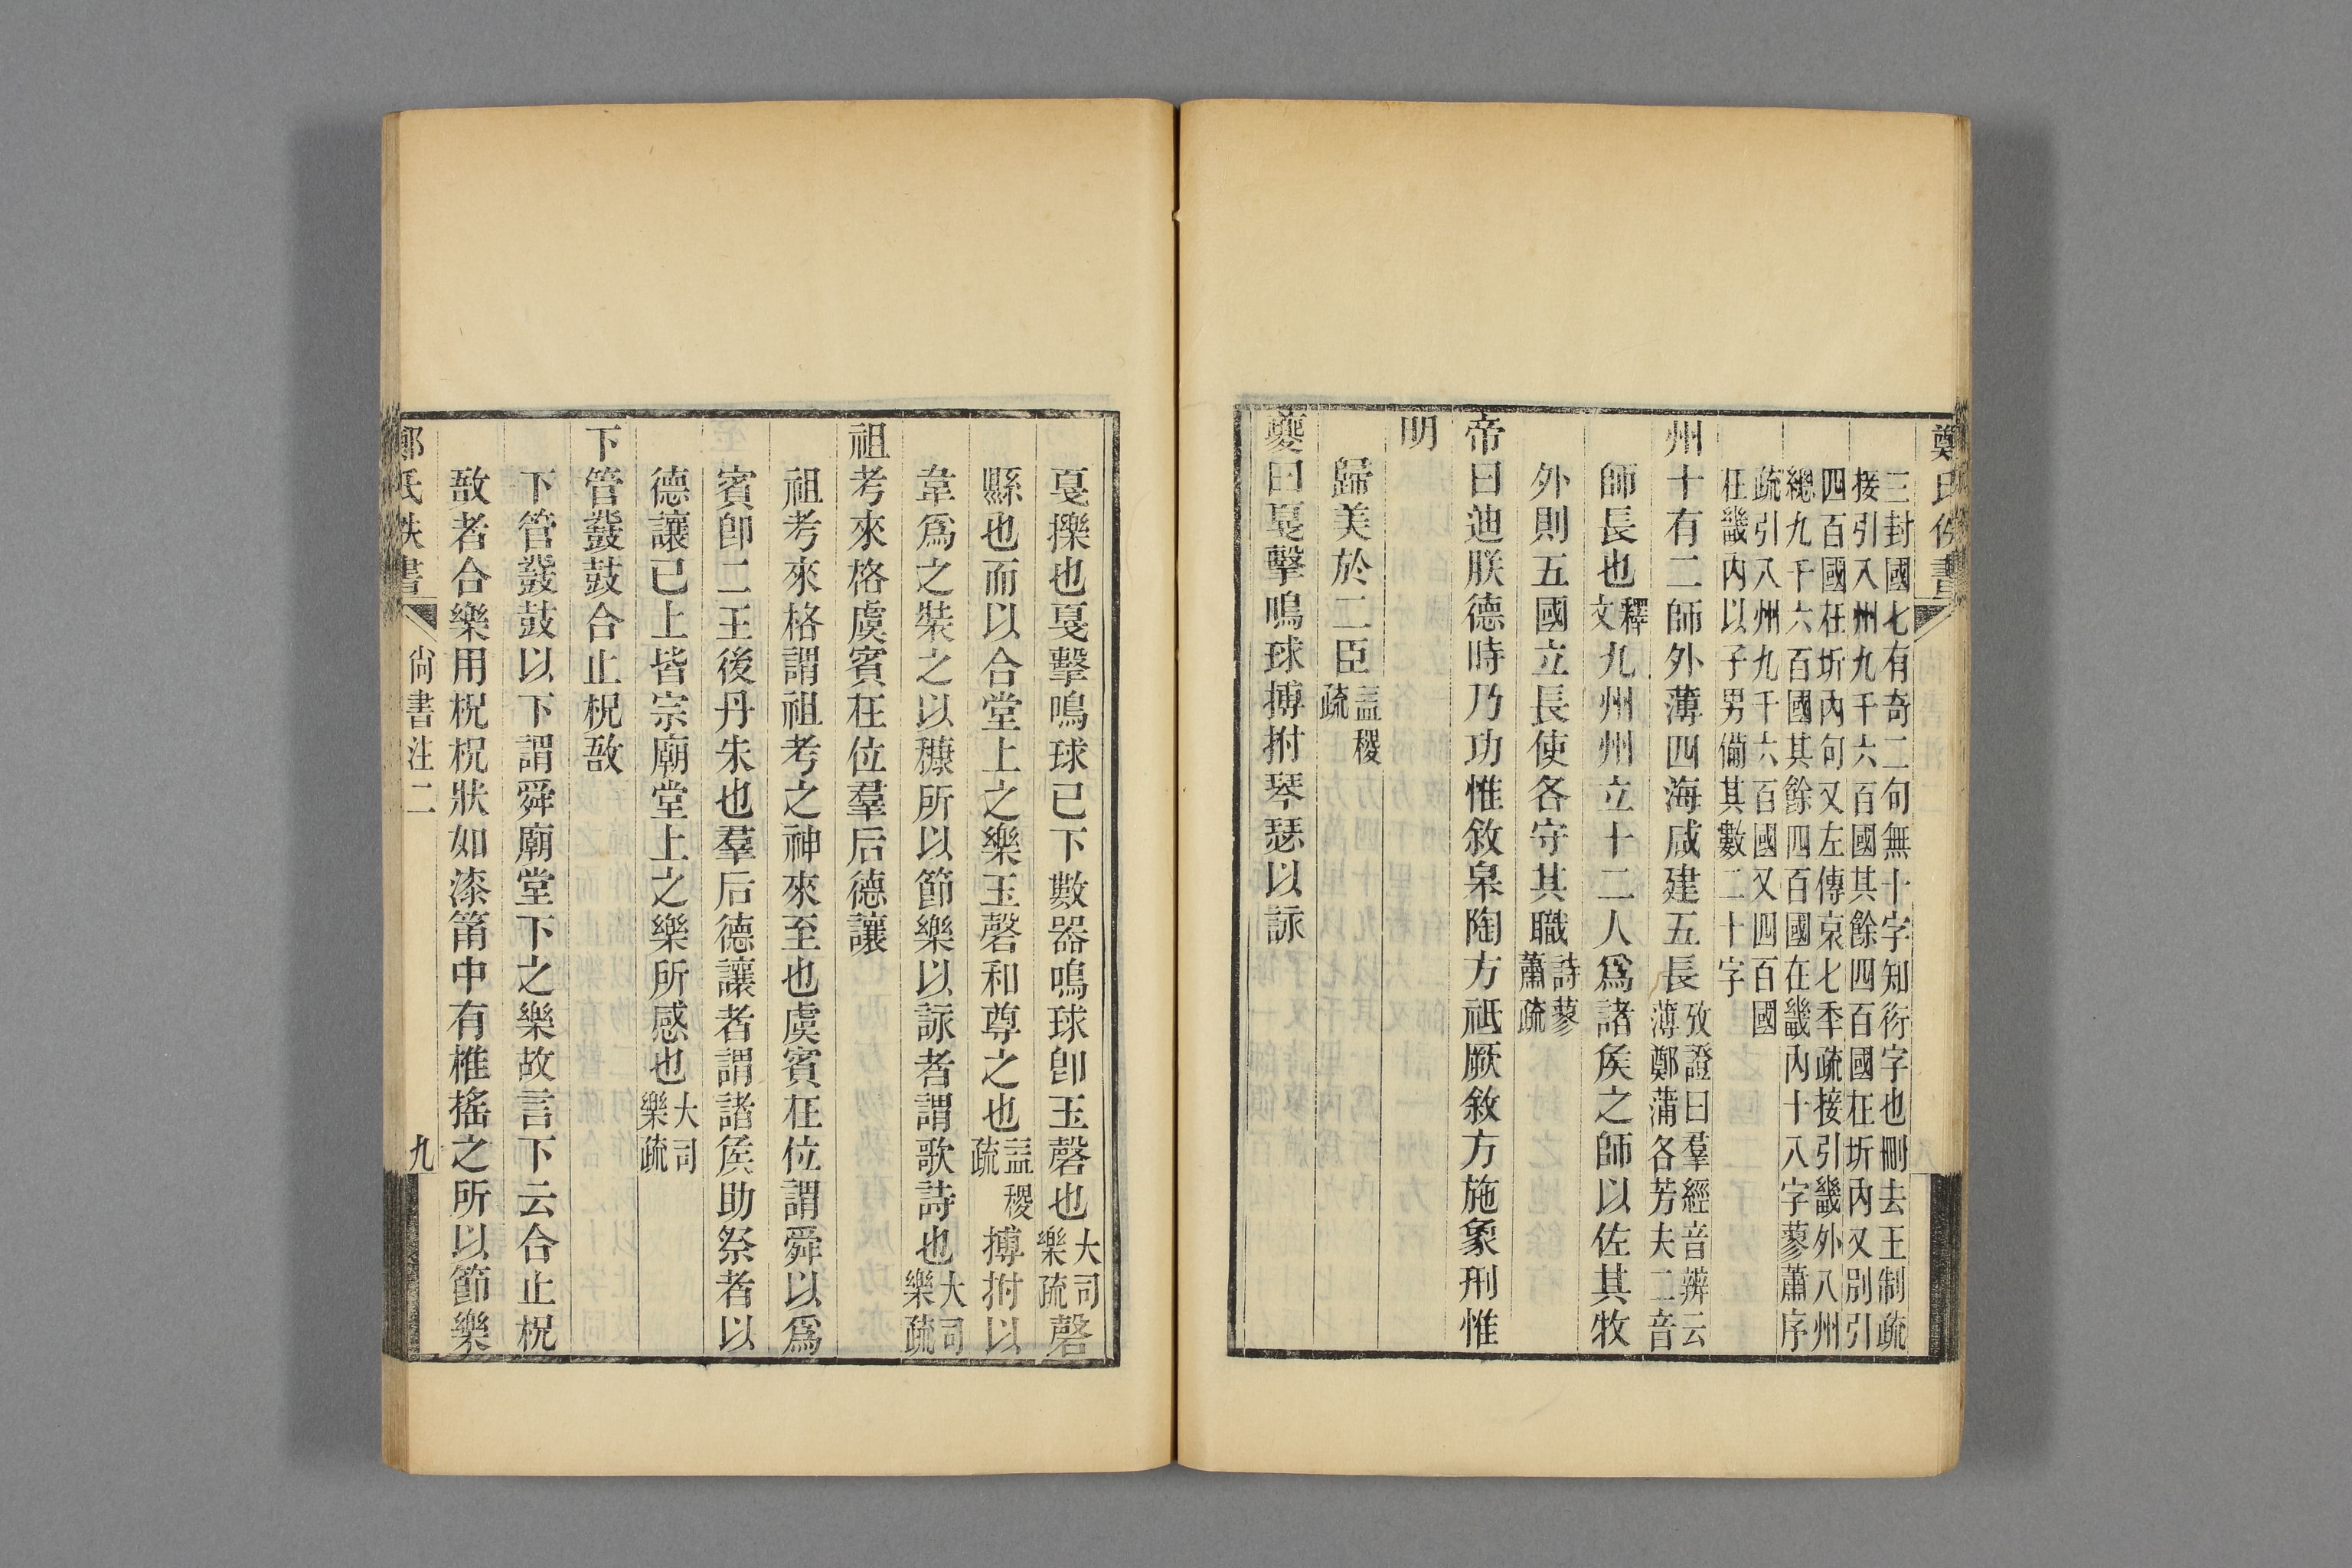 鄭氏佚書
三封國七有奇二句無十字知衍字也刪去王制疏
接引八州九千六百國其餘四百國在圻內又別引
四百國在圻內句又左傳哀七年疏接引畿外八州
總九千六百國其餘四百國在畿內十八字蓼蕭序
疏引八州九千六百國又四百國
在畿內以子男備其數二十字
州十有二師外薄四海咸建五長攷證曰羣經音辨云
薄鄭蒲各芳夫二音
師長也釋文九州州立十二人爲諸矦之師以佐其牧
外則五國立長使各守其職詩蓼蕭疏
帝曰迪朕德時乃功惟敘皋陶方祗厥敘方施象刑惟
明
歸美於二臣益稷疏
夔曰戛擊鳴球搏拊琴瑟以詠
戛擽也戛擊鳴球已下數器鳴球卽玉磬也大司樂疏磬
縣也而以合堂上之樂玉磬和尊之也益稷疏搏拊以
韋爲之裝之以穅所以節樂以詠者謂歌詩也大司樂疏
祖考來格虞賓在位羣后德讓
祖考來格謂祖考之神來至也虞賓在位謂舜以爲
賓卽二王後丹朱也羣后德讓者謂諸矦助祭者以
德讓已上皆宗廟堂上之樂所感也大司樂疏
下管鼗鼓合止柷敔
下管鼗鼓以下謂舜廟堂下之樂故言下云合止柷
敔者合樂用柷柷狀如漆筩中有椎搖之所以節樂
鄭氏佚書
尚書注二
九